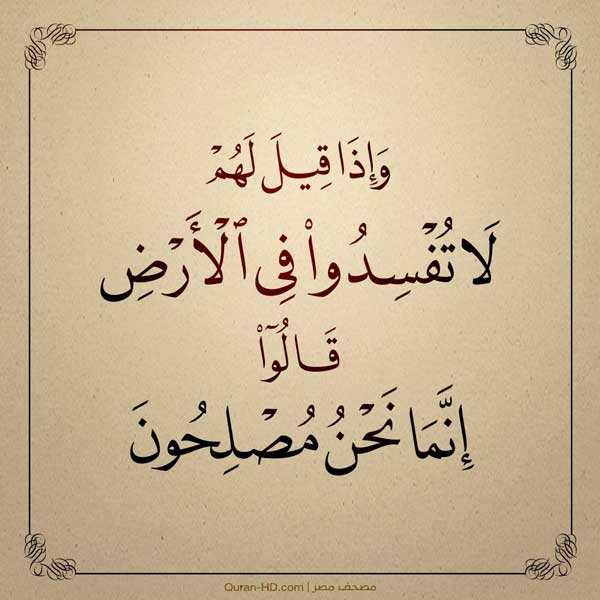 وَإِذَا قِيلَ لَهُمْ
لَا تُفْسِدُوا۟ فِى ٱلْأَرْضِ
قَالُوٓا۟
إِنَّمَا نَحْنُ مُصْلِحُونَ
Quran-HD.com | مصحف مصر